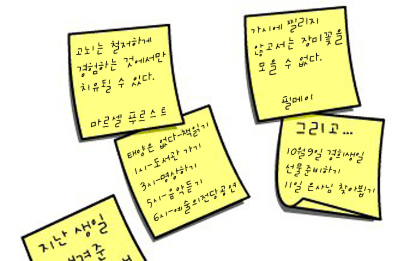 고뇌는 철저하게
경험하는 것에서만
치유될 수 있다.
마르셀 푸르스트
가시에 찔리지
않고서는 장미꽃을
모을 수 없다.
필페이
태양은 없다-책읽기
1시-도서관 가기
3시-명상하기
5시-음악듣기
6시-예술의전당공연
그리고...
10월9일 경희생일
선물준비하기
11일 은사님 찾아뵙기
지난 생일